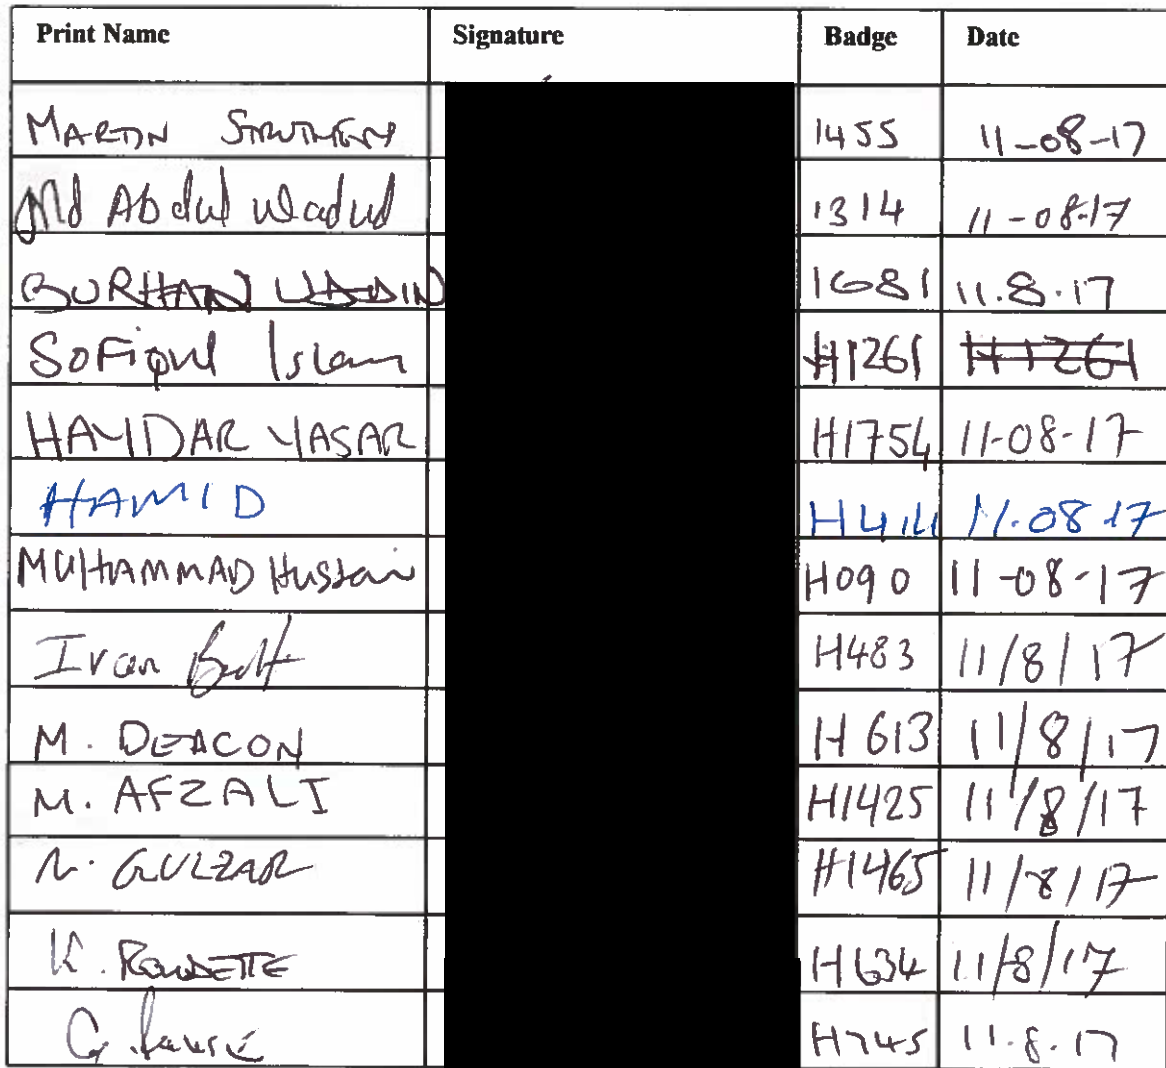 Print Name Signature Badge Date
MARTIN 1455 11-08-17
Md Abdul Wadud 1314 11-08-17
BURHAN UDDIN 1681 11.8.17
SOFiqul Islam H1261 H1261
HAYDAR YASAR H1754 11-08-17
HAMID 11.08.17
MUHAMMAD Hussain H090 11-08-17
Ivan H483 11/8/17
M. DEACON H613 11/8/17
M. AFZALI H1425 11/8/17
N. GULZAR H1465 11/8/17
K. H634 11/8/17
G. H745 11.8.17